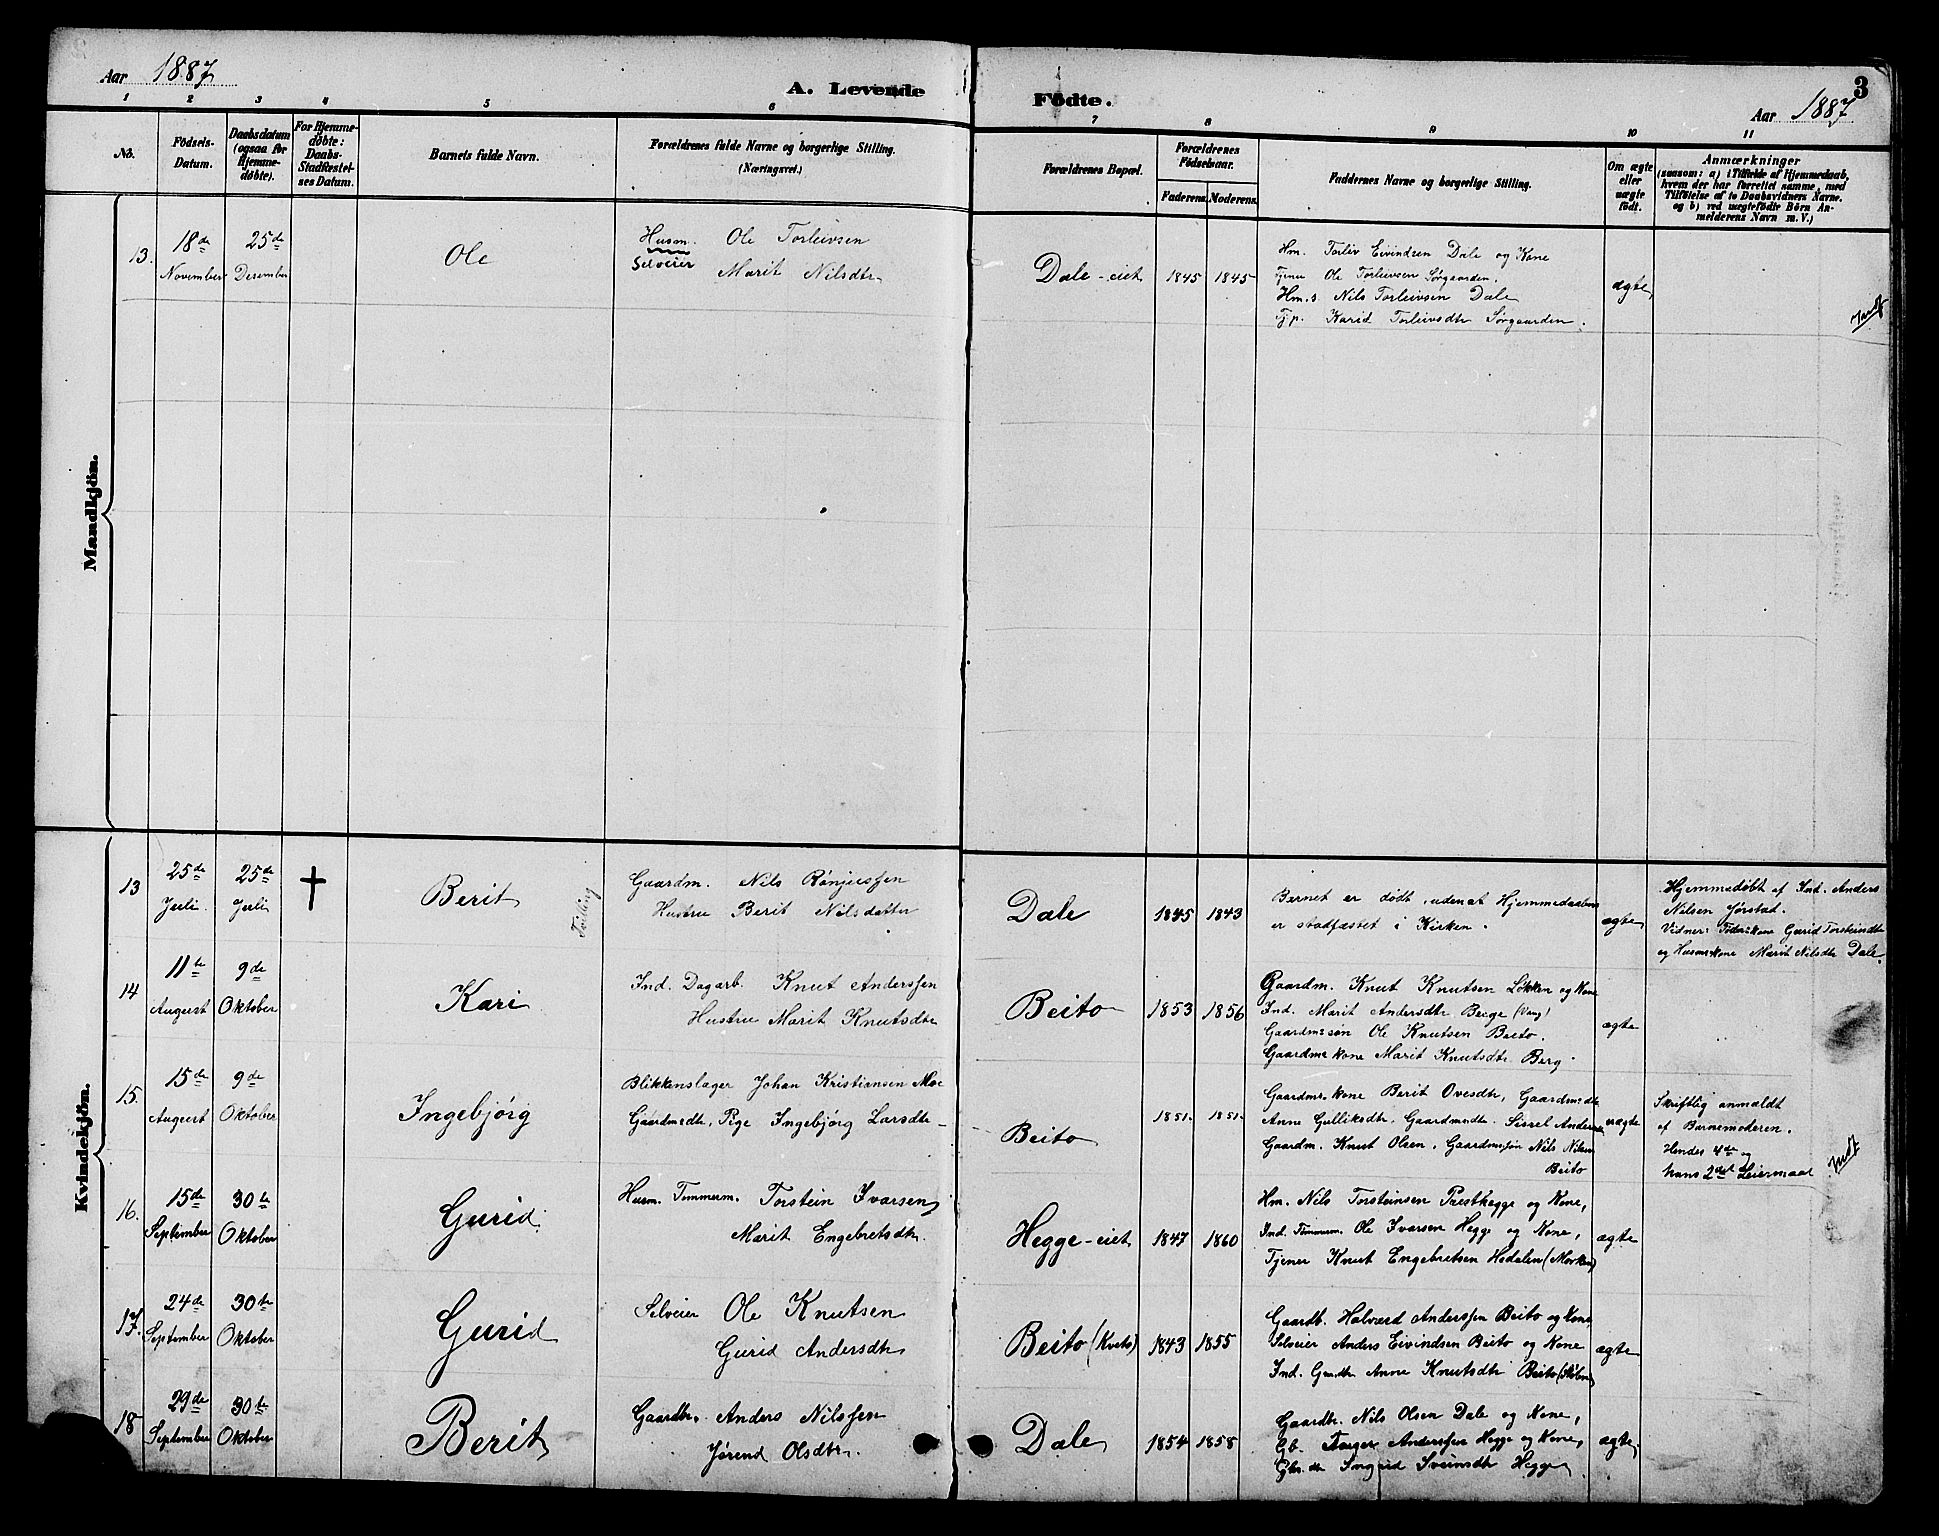 Aar 1887
A. Levende Födte.
3
Aar 1887
1 2 3 4 5 6 7 8 9 10 11
No.
Födsels-Datum.
Daabsdatum (ogsaa for Hjemme-döbte).
For Hjemme-döbte: Daabs-Stadfæstel-ses Datum.
Barnets fulde Navn.
Forældrenes fulde Navne og borgerlige Stilling. (Næringsvei.)
Forældrenes Bopæl.
Forældrenes Födselsaar.
Faderens. Moderens.
Faddernes Navne og borgerlige Stilling.
Om ægte eller uægte födt.
Anmærkninger
(saasom: a) i Tilfælde af Hjemmedaab,
hvem der har forrettet samme, med
Tilföielse af to Daabsvidners Navne.
og b) ved uægtefödte Börn An-
melderens Navn m. V.)
Mandkjön.
13. 18de November 25de Desember
Ole
Husm. Selveier Ole Torleivsen
Marit Nilsdtr
Dale-eiet 1845 1845
Hm. Torleiv Eivindsen Dale og Kone
Tjener Ole Torleivsen Sørgaarden.
Hm.s. Nils Torleivsen Dale
Tjp. Karid Torleivsdtr Sørgaarden.
ægte
Kvindekjön.
13 25de Juli. 25de Juli †
Berit
Gaardm. Nils Rønjussen
Hustru Berit Nilsdatter
Dale 1845 1843
Barnet er dødt, udenat Hjemmedaaben
er stadfæstet i Kirken.
ægte
Hjemmedøbt af Ind. Anders
Nilsen Jørstad.
Vidner: Føderkone Gurid Torsteindtr
og Husm.kone Marit Nilsdtr Dale.
14 11te August 9de Oktober
Kari
Ind. Dagarb. Knut Anderssen
Hustru Marit Knutsdtr
Beito 1853 1856
Gaardm. Knut Knutsen Løkken og Kone
Ind. Marit Andersdtr Berge (Vang)
Gaardmssøn Ole Knutsen Beito.
Gaardms kone Marit Knutsdtr. Berg.
ægte
15. 15de August 9de Oktober
Ingebjørg
Blikkenslager Johan Kristiansen Moe
Gaardmsdtr, Pige Ingebjørg Larsdtr
Beito 1851. 1851.
Gaardms kone Berit Ovesdtr, Gaardmsdtr
Anne Gulliksdtr. Gaardmsdtr. Sissel Andersen
Gaardm. Knut Olsen, Gaardmssøn Nils Nilsen
Beito
uægte
Skriftlig anmeldt
af Barnemoderen.
Hendes 4de og
hans 2det Leiermaal
16. 15de September 30te Oktober
Gurid
Husm. Tømmerm. Torstein Ivarsen
Marit Engebretsdtr.
Hegge-eiet 1847 1860
Hm. Nils Torsteinsen Presthegge og Kone,
Ind. Tømmerm. Ole Ivarsen Hegge og Kone,
Tjener Knut Engebretsen Hedalen (Morken)
ægte
17. 24de September 30te Oktober
Gurid
Selveier Ole Knutsen
Gurid Andersdtr
Beito (Kvito) 1843 1855
Gaardb. Halvard Anderssen Beito og Kone,
Selveier Anders Eivindsen Beito og Kone
Ind. Gmdtr Anne Knutsdtr Beito
ægte
18 29de September 30te Oktober
Berit
Gaardbr. Anders Nilssen
Jørend Olsdtr.
Dale 1854 1858
Gaardbr. Nils Olsen Dale og Kone,
Gb. Anderssen Hegge og Kone,
Gbr.dtr Ingrid Sveinsdtr Hegge
ægte